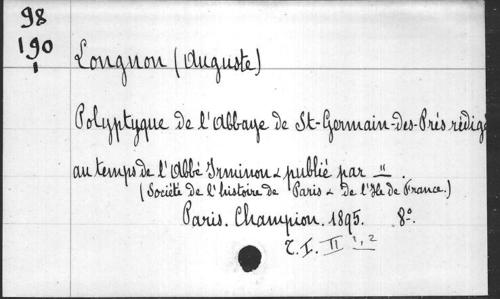 98
190
1
Longnon (Auguste)
Polyptyque de l'Abbaye de St-Germain-des-Prés rédigé
au temps de l'Abbé Irminon & publié par " .
(Société de l'histoire de Paris & de l'Ile de France.)
Paris. Champion. 1895. 8º.
T. I. II 1, 2